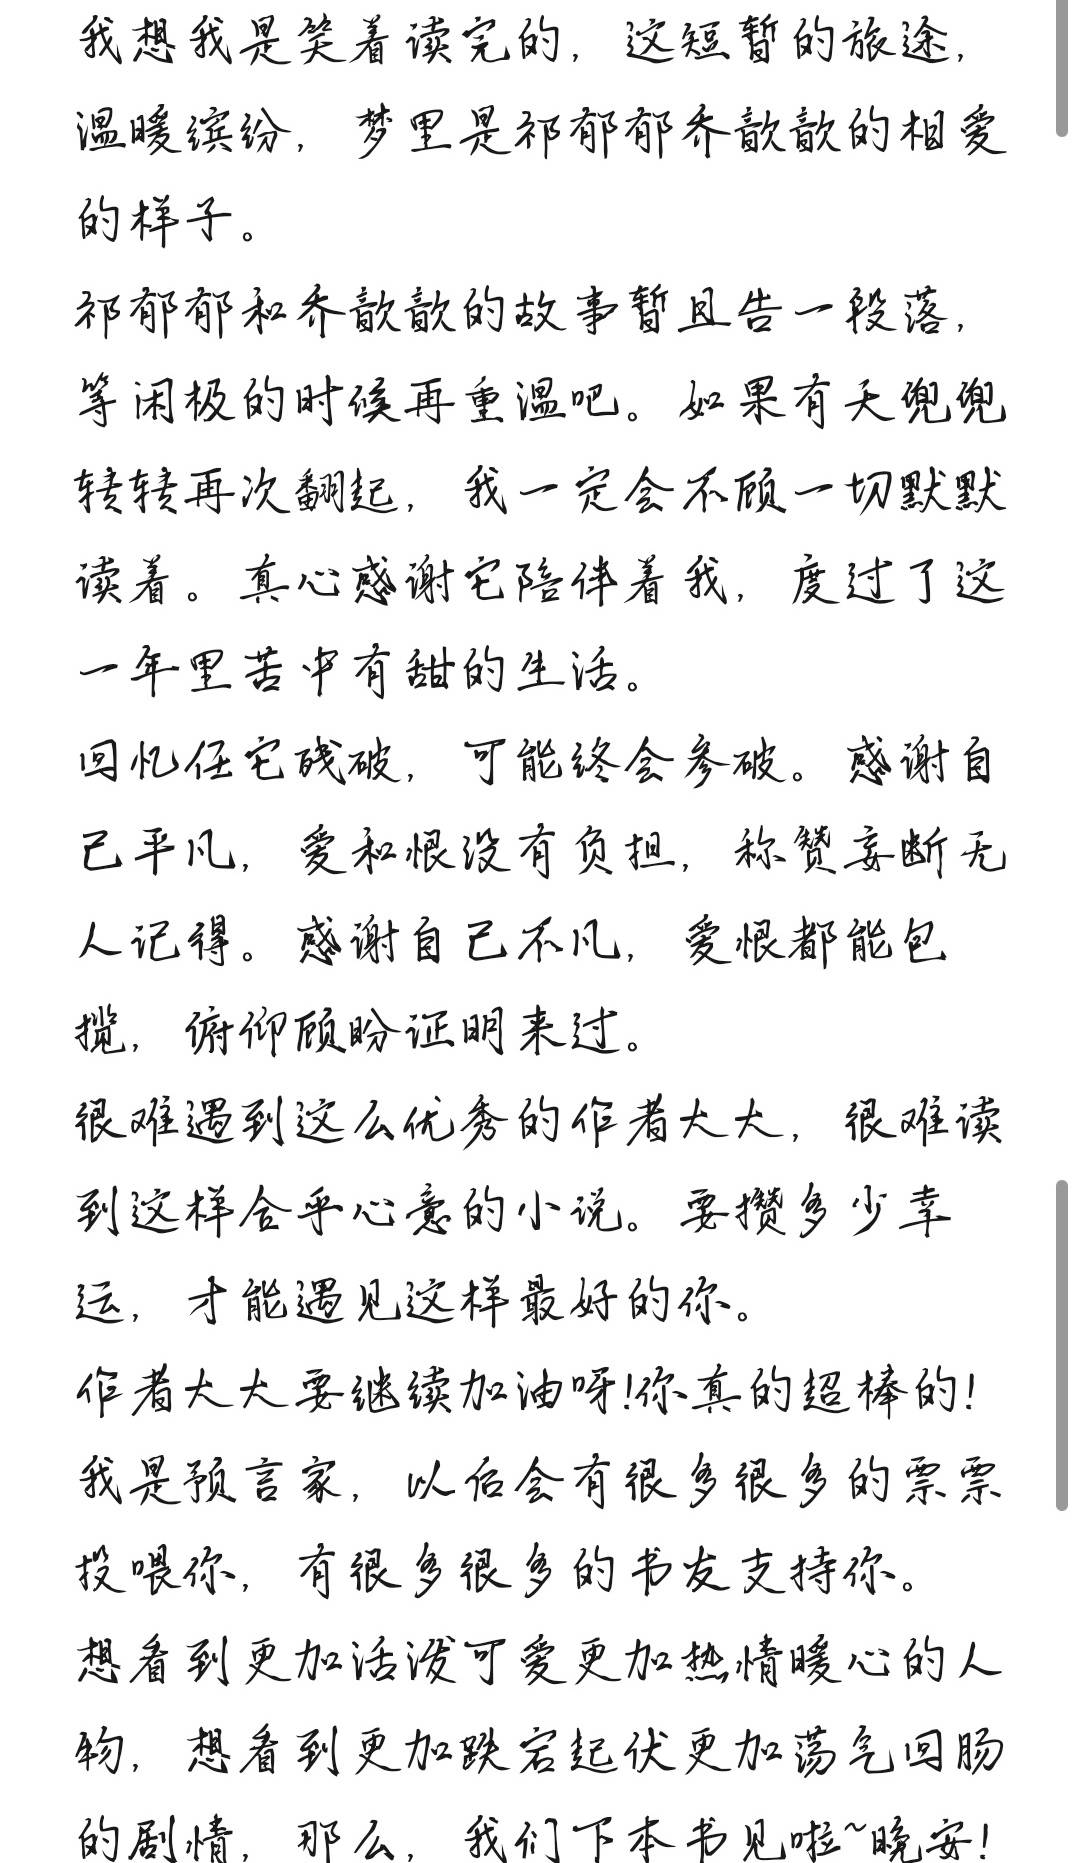 我想我是笑着读完的，这短暂的旅途，
温暖缤纷，梦里是祁郁郁乔歆歆的相爱
的样子。
祁郁郁和乔歆歆的故事暂且告一段落，
等闲极的时候再重温吧。如果有天兜兜
转转再次翻起，我一定会不顾一切默默
读着。真心感谢它陪伴着我，度过了这
一年里苦中有甜的生活。
回忆任它残破，可能终会参破。感谢自
己平凡，爱和恨没有负担，称赞妄断无
人记得。感谢自己不凡，爱恨都能包
揽，俯仰顾盼证明来过。
很难遇到这么优秀的作者大大，很难读
到这样合乎心意的小说。要攒多少幸
运，才能遇见这样最好的你。
作者大大要继续加油呀!你真的超棒的!
我是预言家，以后会有很多很多的票票
投喂你，有很多很多的书友支持你。
想看到更加活泼可爱更加热情暖心的人
物，想看到更加跌宕起伏更加荡气回肠
的剧情，那么，我们下本书见啦~晚安!